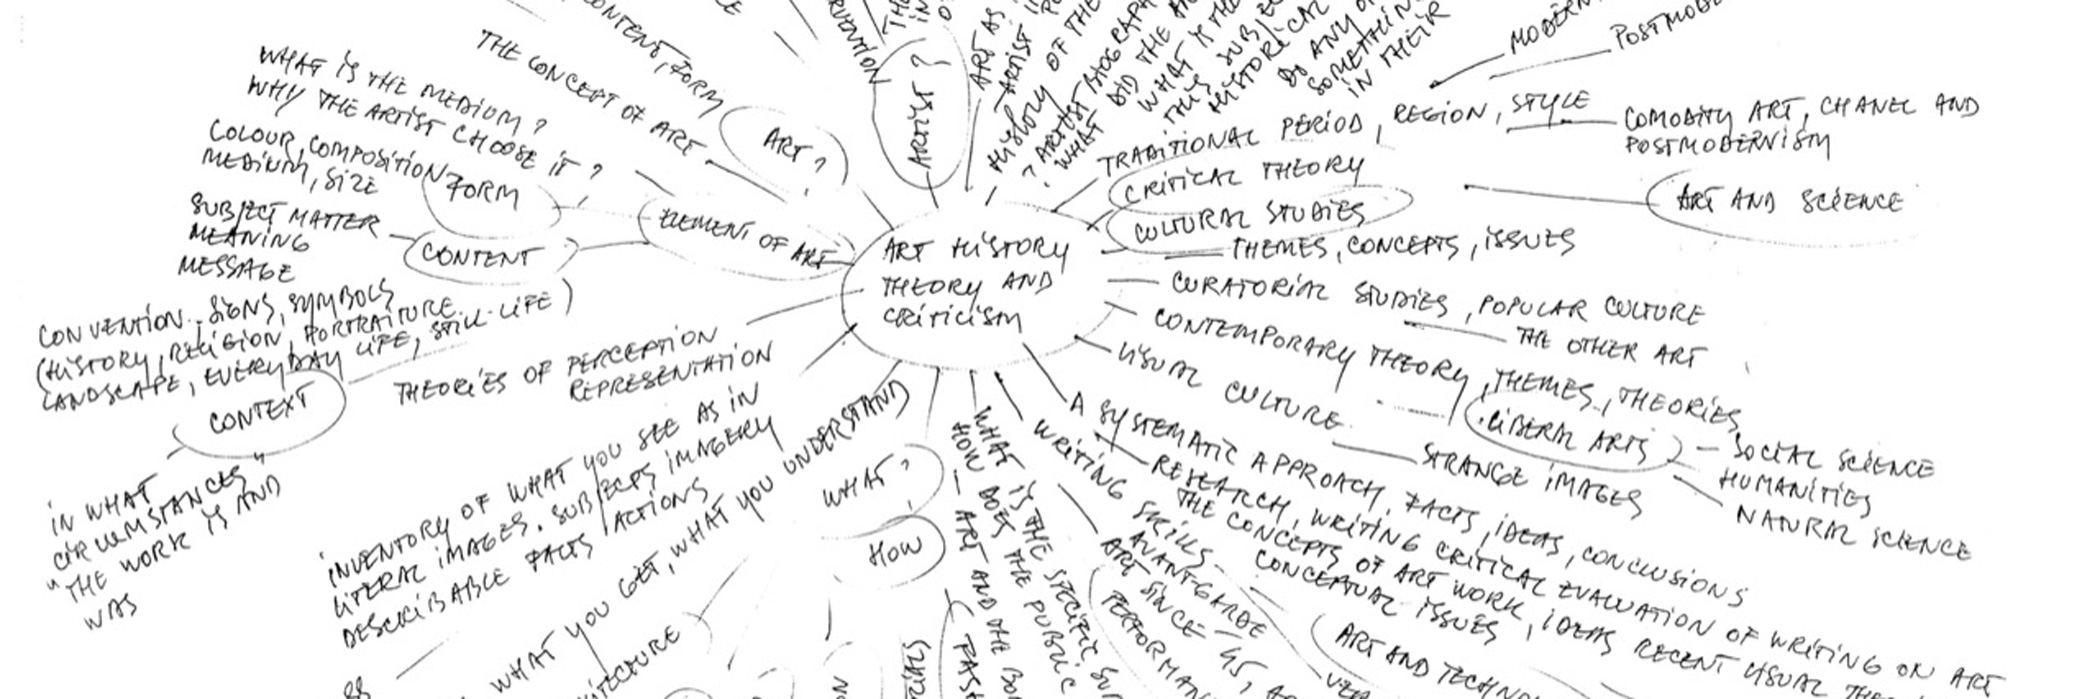 CONTENT, FORM
THE CONCEPT OF ART
ART?
ARTIST?
ART AS
ARTIST
HISTORY OF THE
? ARTIST BIOGRAPH
WHAT DID THE
WHAT IS THE
THIS SUBJE
HISTORICAL
DO ANY O
SOMETHIN
IN THEIR
MODERN
POSTMODE
WHAT IS THE MEDIUM?
WHY THE ARTIST CHOOSE IT?
COLOUR, COMPOSITION
MEDIUM, SIZE
FORM
SUBJECT MATTER
MEANING
MESSAGE
CONTENT
ELEMENT OF ART
CONVENTION.. SIGNS, SYMBOLS
(HISTORY, RELIGION, PORTRAITURE
LANDSCAPE, EVERYDAY LIFE, STILL-LIFE)
CONTEXT
IN WHAT
CIRCUMSTANCES"
"THE WORK IS AND
WAS
ART HISTORY
THEORY AND
CRITICISM
TRADITIONAL PERIOD, REGION, STYLE
COMODITY ART, CHANEL AND
POSTMODERNISM
CRITICAL THEORY
ART AND SCIENCE
CULTURAL STUDIES
THEMES, CONCEPTS, ISSUES
CURATORIAL STUDIES, POPULAR CULTURE
THE OTHER ART
CONTEMPORARY THEORY, THEMES, THEORIES,
LIBERAL ARTS
SOCIAL SCIENCE
HUMANITIES
NATURAL SCIENCE
VISUAL CULTURE
STRANGE IMAGES
A SYSTEMATIC APPROACH, FACTS, IDEAS, CONCLUSIONS
RESEARCH, WRITING CRITICAL EVALUATION OF WRITING ON ART
THE CONCEPTS OF ART WORK, IDEAS RECENT VISUAL
CONCEPTUAL ISSUES
WRITING SKILLS
AVANT-GARDE
ART SINCE 45,
PERFORMAN
ART AND TECHNO
WHAT IS THE SPECIFIC
HOW DOES THE PUBLIC
ART AND THE
THEORIES OF PERCEPTION
REPRESENTATION
INVENTORY OF WHAT YOU SEE AS IN
LITERAL IMAGES, SUBJECTS IMAGERY
DESCRIBABLE FACTS /ACTIONS
WHAT YOU GET, WHAT YOU UNDERSTAND
WHAT?
HOW